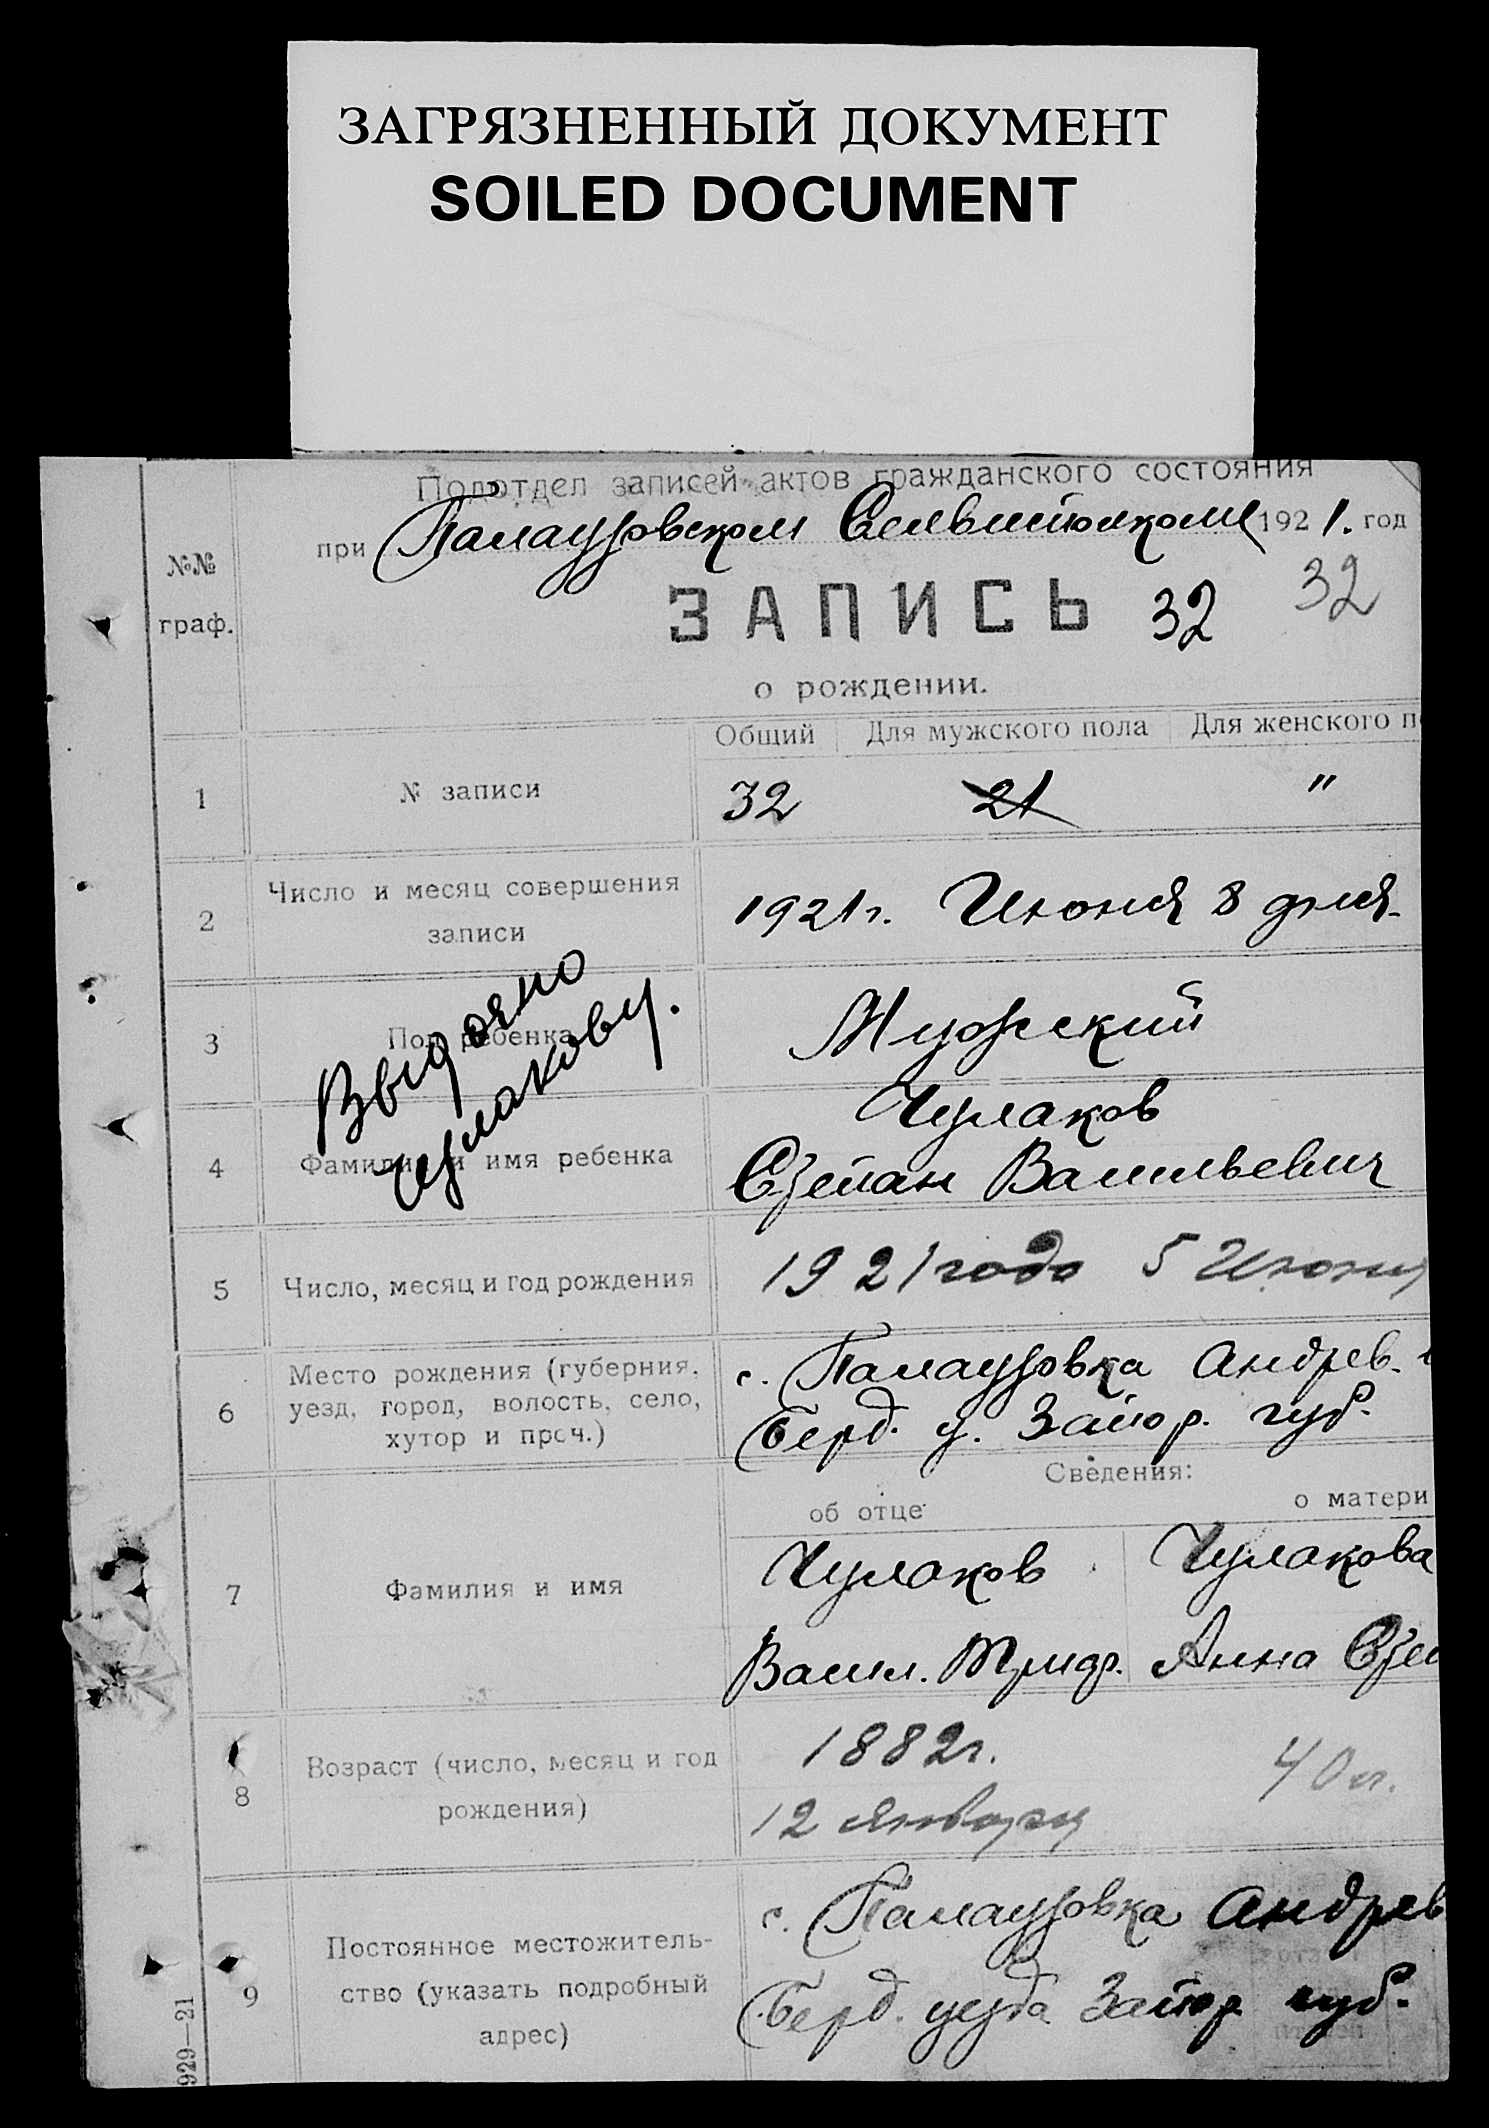 ЗАГРЯЗНЕННЫЙ ДОКУМЕНТ
SOILED DOCUMENT
Подотдел записей актов гражданского состояния
при Палаузовском 1921. год
№№
граф.
ЗАПИСЬ 32 32
о рождении.
Общий Для мужского пола Для женского п
1 № записи 32 21 "
2 Число и месяц совершения
записи
1921 г. Июня 8 дня.
3 Пол ребенка Мужской
Выдано
Чулакову.
4 Фамилия и имя ребенка
Чулаков
Степан Васильевич
5 Число, месяц и год рождения 1921 года 5 Июня
6 Место рождения (губерния,
уезд, город, волость, село,
хутор и проч.)
с. Палаузовка Андрев.
Берд. у. Запор. губ.
Сведения:
об отце о матери
7 Фамилия и имя
Чулаков Чулакова
Васил. Триф. Анна Сте
8 Возраст (число, месяц и год
рождения)
1882 г. 40 л.
12 января
9 Постоянное местожитель-
ство (указать подробный
адрес)
с. Палаузовка Андрев
Берд. уезда Запор губ.
929—21